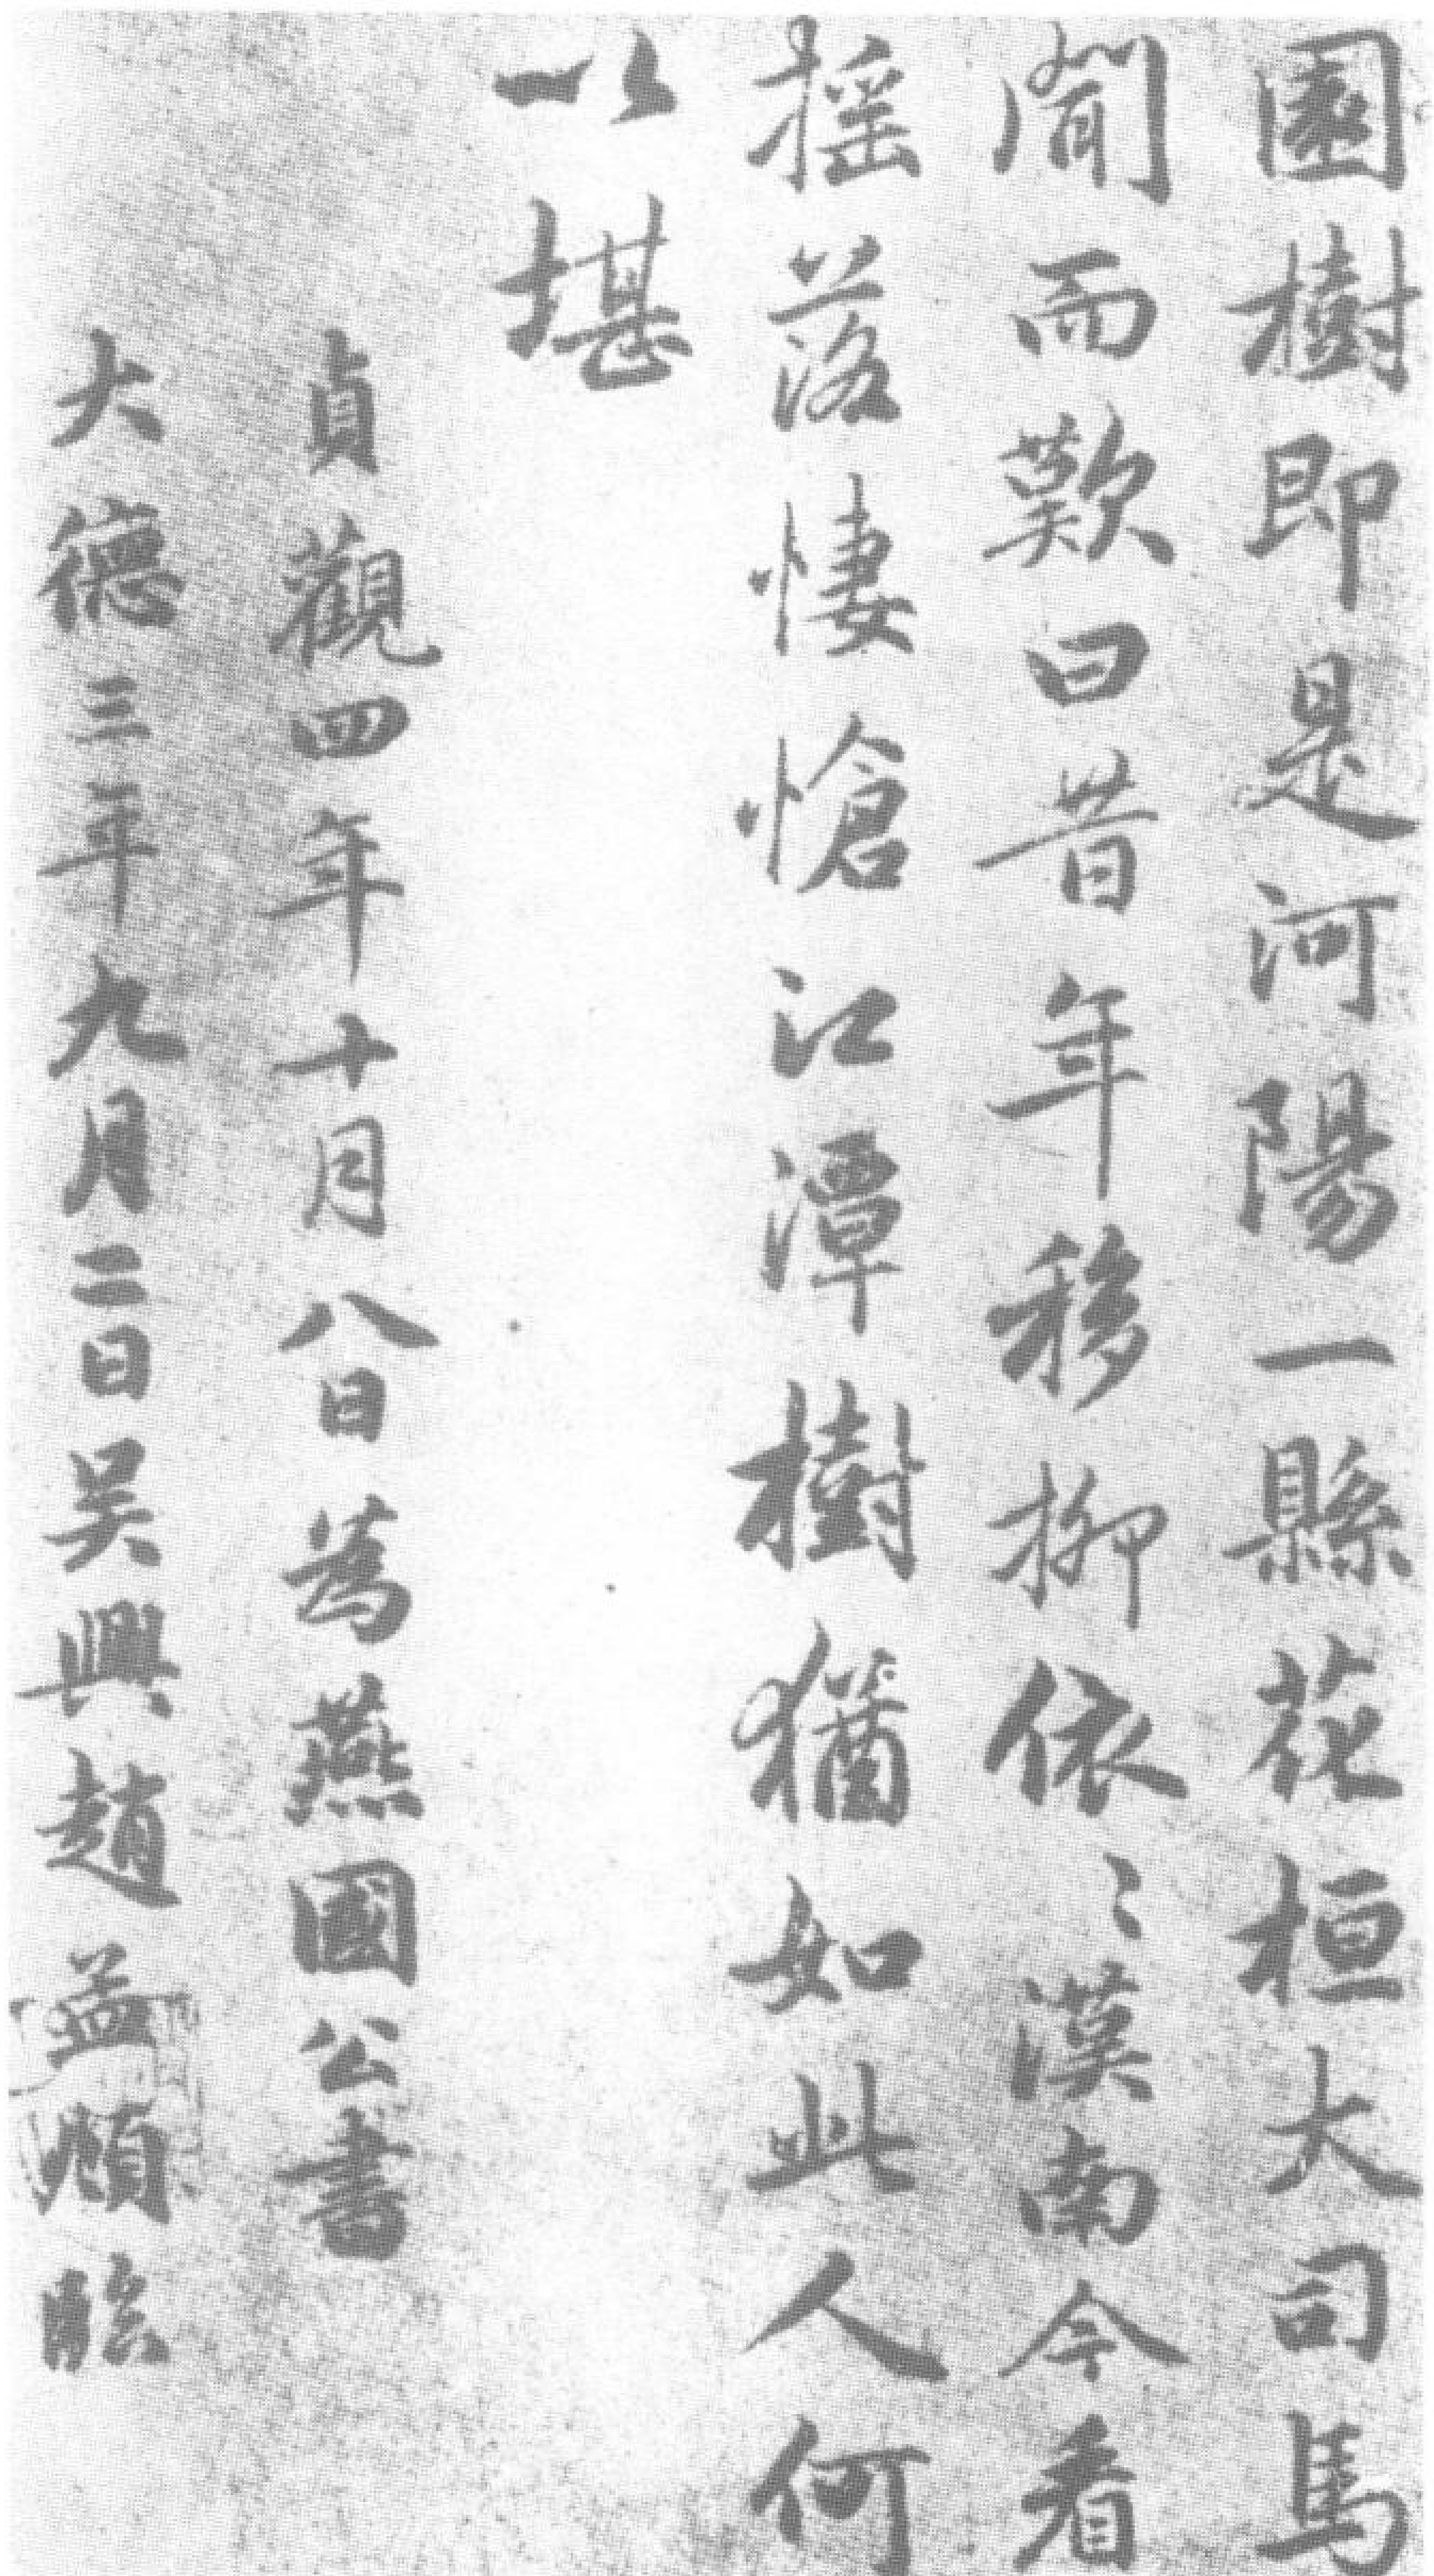 園樹即是河陽一縣花桓大司馬
聞而歎曰昔年移柳依〻漢南今看
搖落悽愴江潭樹猶如此人何
以堪
貞觀四年十月八日為燕國公書
大德三年九月二日吳興趙孟頫臨